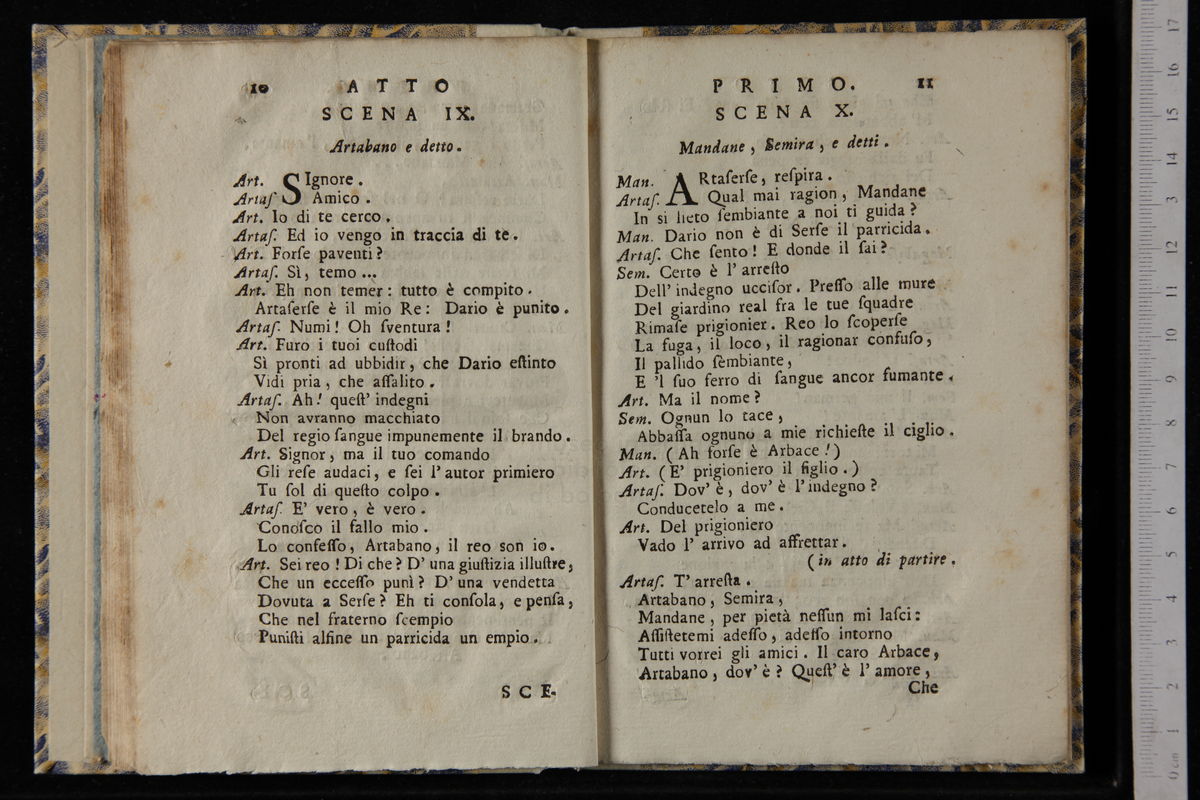 10 ATTO
SCENA IX.
Artabano e detto.
Art. SIgnore.
Artaſ Amico.
Art. Io di te cerco.
Artaſ. Ed io vengo in traccia di te.
Art. Forſe paventi?
Artaſ. Sì, temo ...
Art. Eh non temer: tutto è compito.
Artaſerſe è il mio Re: Dario è punito.
Artaſ. Numi! Oh ſventura!
Art. Furo i tuoi cuſtodi
Sì pronti ad ubbidir, che Dario eſtinto
Vidi pria, che aſſalito.
Artaſ. Ah! queſt' indegni
Non avranno macchiato
Del regio ſangue impunemente il brando.
Art. Signor, ma il tuo comando
Gli reſe audaci, e ſei l'autor primiero
Tu ſol di queſto colpo.
Artaſ. E' vero, è vero.
Conoſco il fallo mio.
Lo confeſſo, Artabano, il reo son io.
Art. Sei reo! Di che? D'una giuſtizia illuſtre,
Che un ecceſſo punì? D'una vendetta
Dovuta a Serſe? Eh ti conſola, e penſa,
Che nel fraterno ſcempio
Puniſti alfine un parricida un empio.
SCE-
PRIMO. 11
SCENA X.
Mandane, Semira, e detti.
Man. ARtaſerſe, reſpira.
Artaſ. Qual mai ragion, Mandane
In sì lieto ſembiante a noi ti guida?
Man. Dario non è di Serſe il parricida.
Artaſ. Che ſento! E donde il ſai?
Sem. Certo è l'arreſto
Dell'indegno ucciſor. Preſſo alle mure
Del giardino real fra le tue ſquadre
Rimaſe prigionier. Reo lo ſcoperſe
La fuga, il loco, il ragionar confuſo,
Il pallido ſembiante,
E 'l ſuo ferro di ſangue ancor fumante.
Art. Ma il nome?
Sem. Ognun lo tace,
Abbaſſa ognuno a mie richieſte il ciglio.
Man. (Ah forſe è Arbace!)
Art. (E' prigioniero il figlio.)
Artaſ. Dov'è, dov'è l'indegno?
Conducetelo a me.
Art. Del prigioniero
Vado l'arrivo ad affrettar.
(in atto di partire.
Artaſ. T'arreſta.
Artabano, Semira,
Mandane, per pietà neſſun mi laſci:
Aſſiſtetemi adeſſo, adeſſo intorno
Tutti vorrei gli amici. Il caro Arbace,
Artabano, dov'è? Queſt'è l'amore,
Che
0 cm 1 2 3 4 5 6 7 8 9 10 11 12 13 14 15 16 17